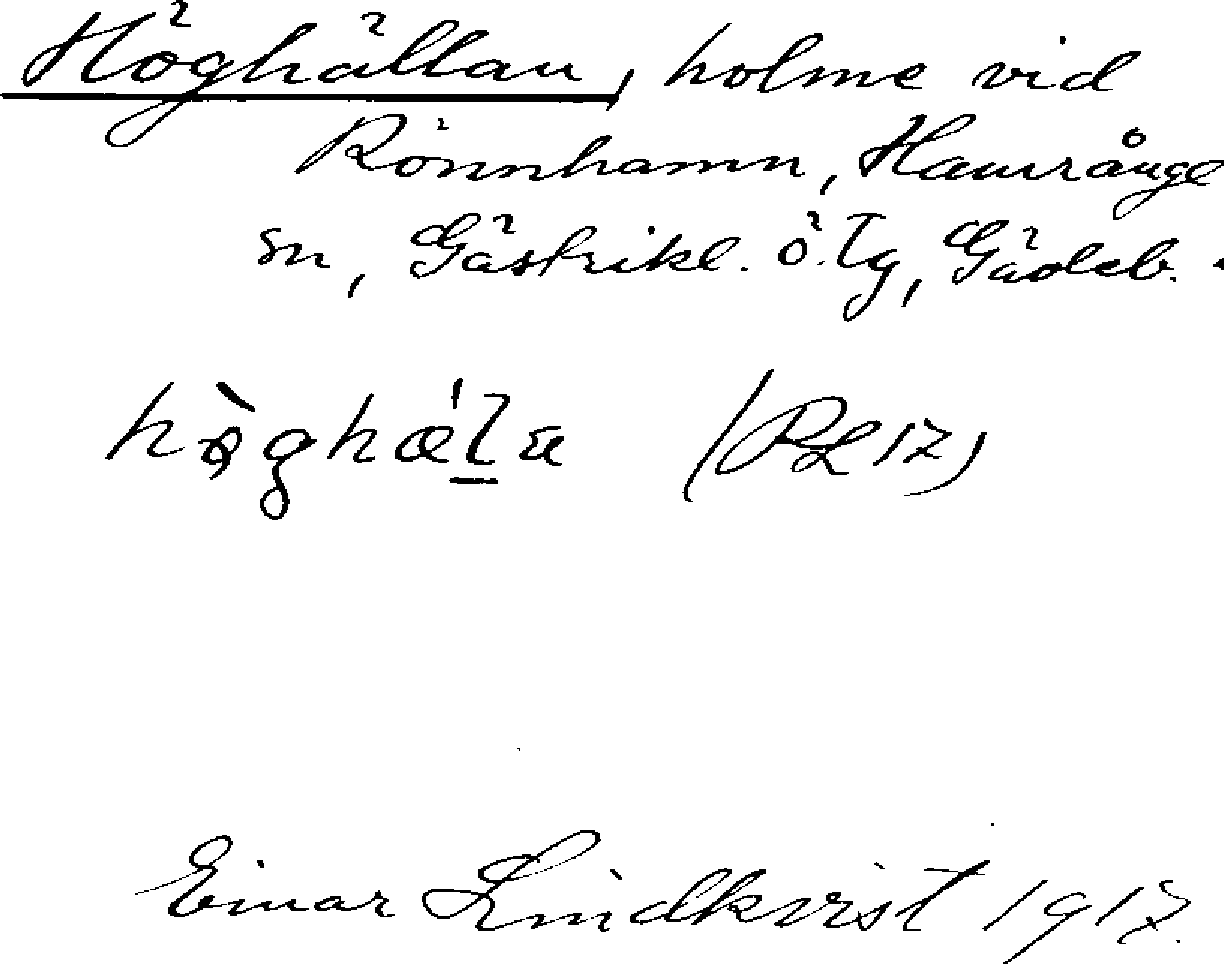 Höghällan, holme vid
Rönnhamn, Hamrånge
sn, Gästrikl. ö. Tg, Gädeb.
(PL 17)
Einar Lindkvist 1917.